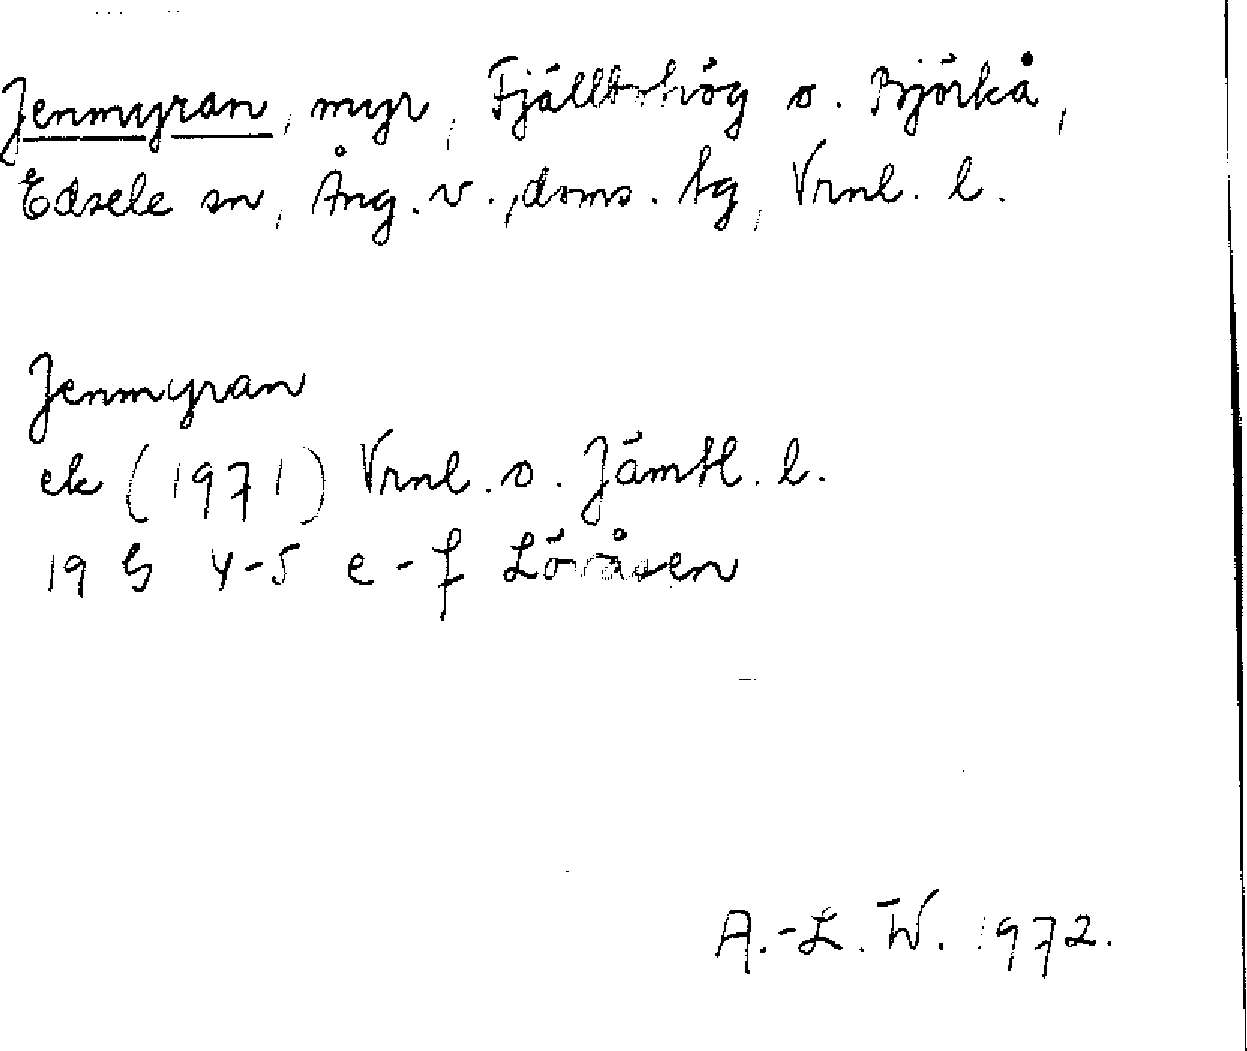 Jenmyran, myr, Fjälltorhög o. Björkå,
Edsele sn, Ång. v., doms. hg, Vrnl. l.
Jenmyran
ek (1971) Vrnl. o. Jämtl. l.
19 G 4-5 e-f Lövåsen
A.-L. W. 1972.